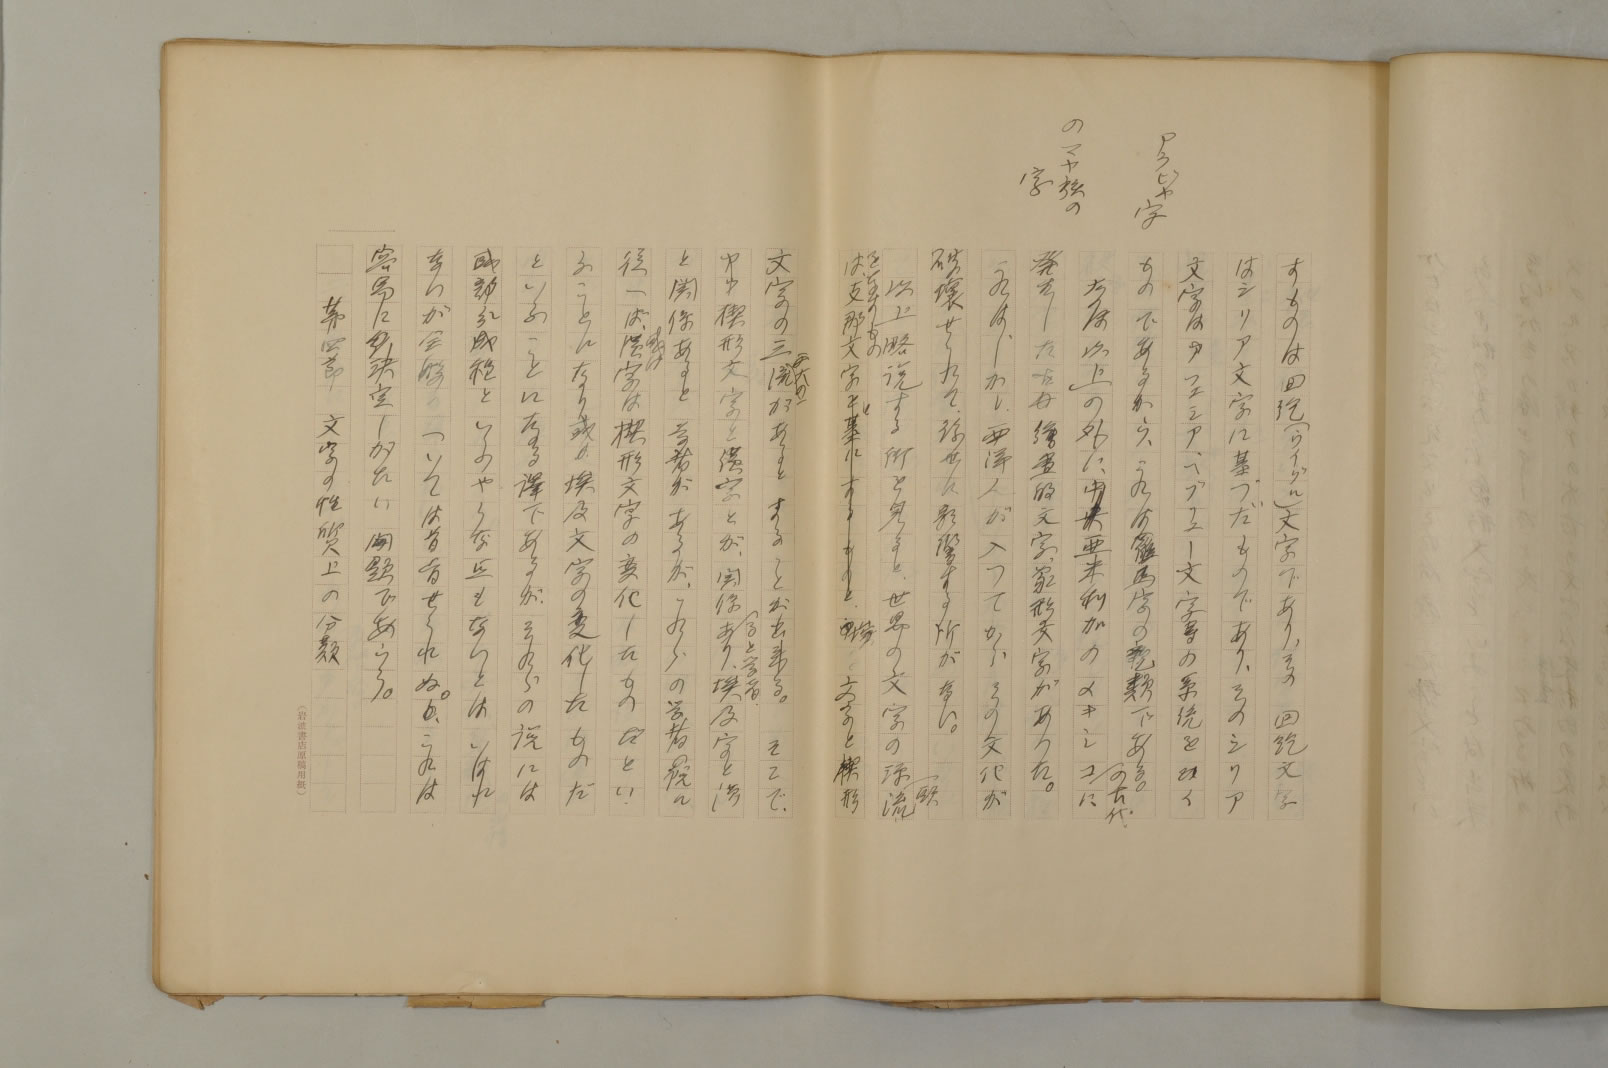 アラビヤ字
のマヤ族の
字
すものは回紇(ウイグル)文字であり、その回紇文字
はシリア文字に基づだものであり、そのシリア
文字はフェニシア、ヘブリュー文字等の系統を引く
ものであるから、これは羅馬字の親類である。
なほ以上の外に、中央亜米利加のメキシコに
の古代
発達した絵画的文字、象形文字があつた。
これは、しかし、西洋人が入つてから、その文化が
破壊せられて、後世に影響する所がない。
以上略説する所を見ると、世界の文字の源流
は、支那文字を基にするものと、埃及文字と楔形
を基とするもの
文字の三流があるとすることが出来る。そこで、
三大
中に楔形文字と漢字とが、関係あり、埃及字と漢
ると学者
と関係あると学者があるが、これらの学者の説に
従へば、漢字は楔形文字の変化したものだとい
或は
ふことになり或は埃及文字の変化したものだ
といふことになる譯であるが、それらの説には
ないが全般については首肯せられぬ。これは
容易に決定しがたい問題であらう。
第四章 文字の性質上の分類
(岩波書店原稿用紙)